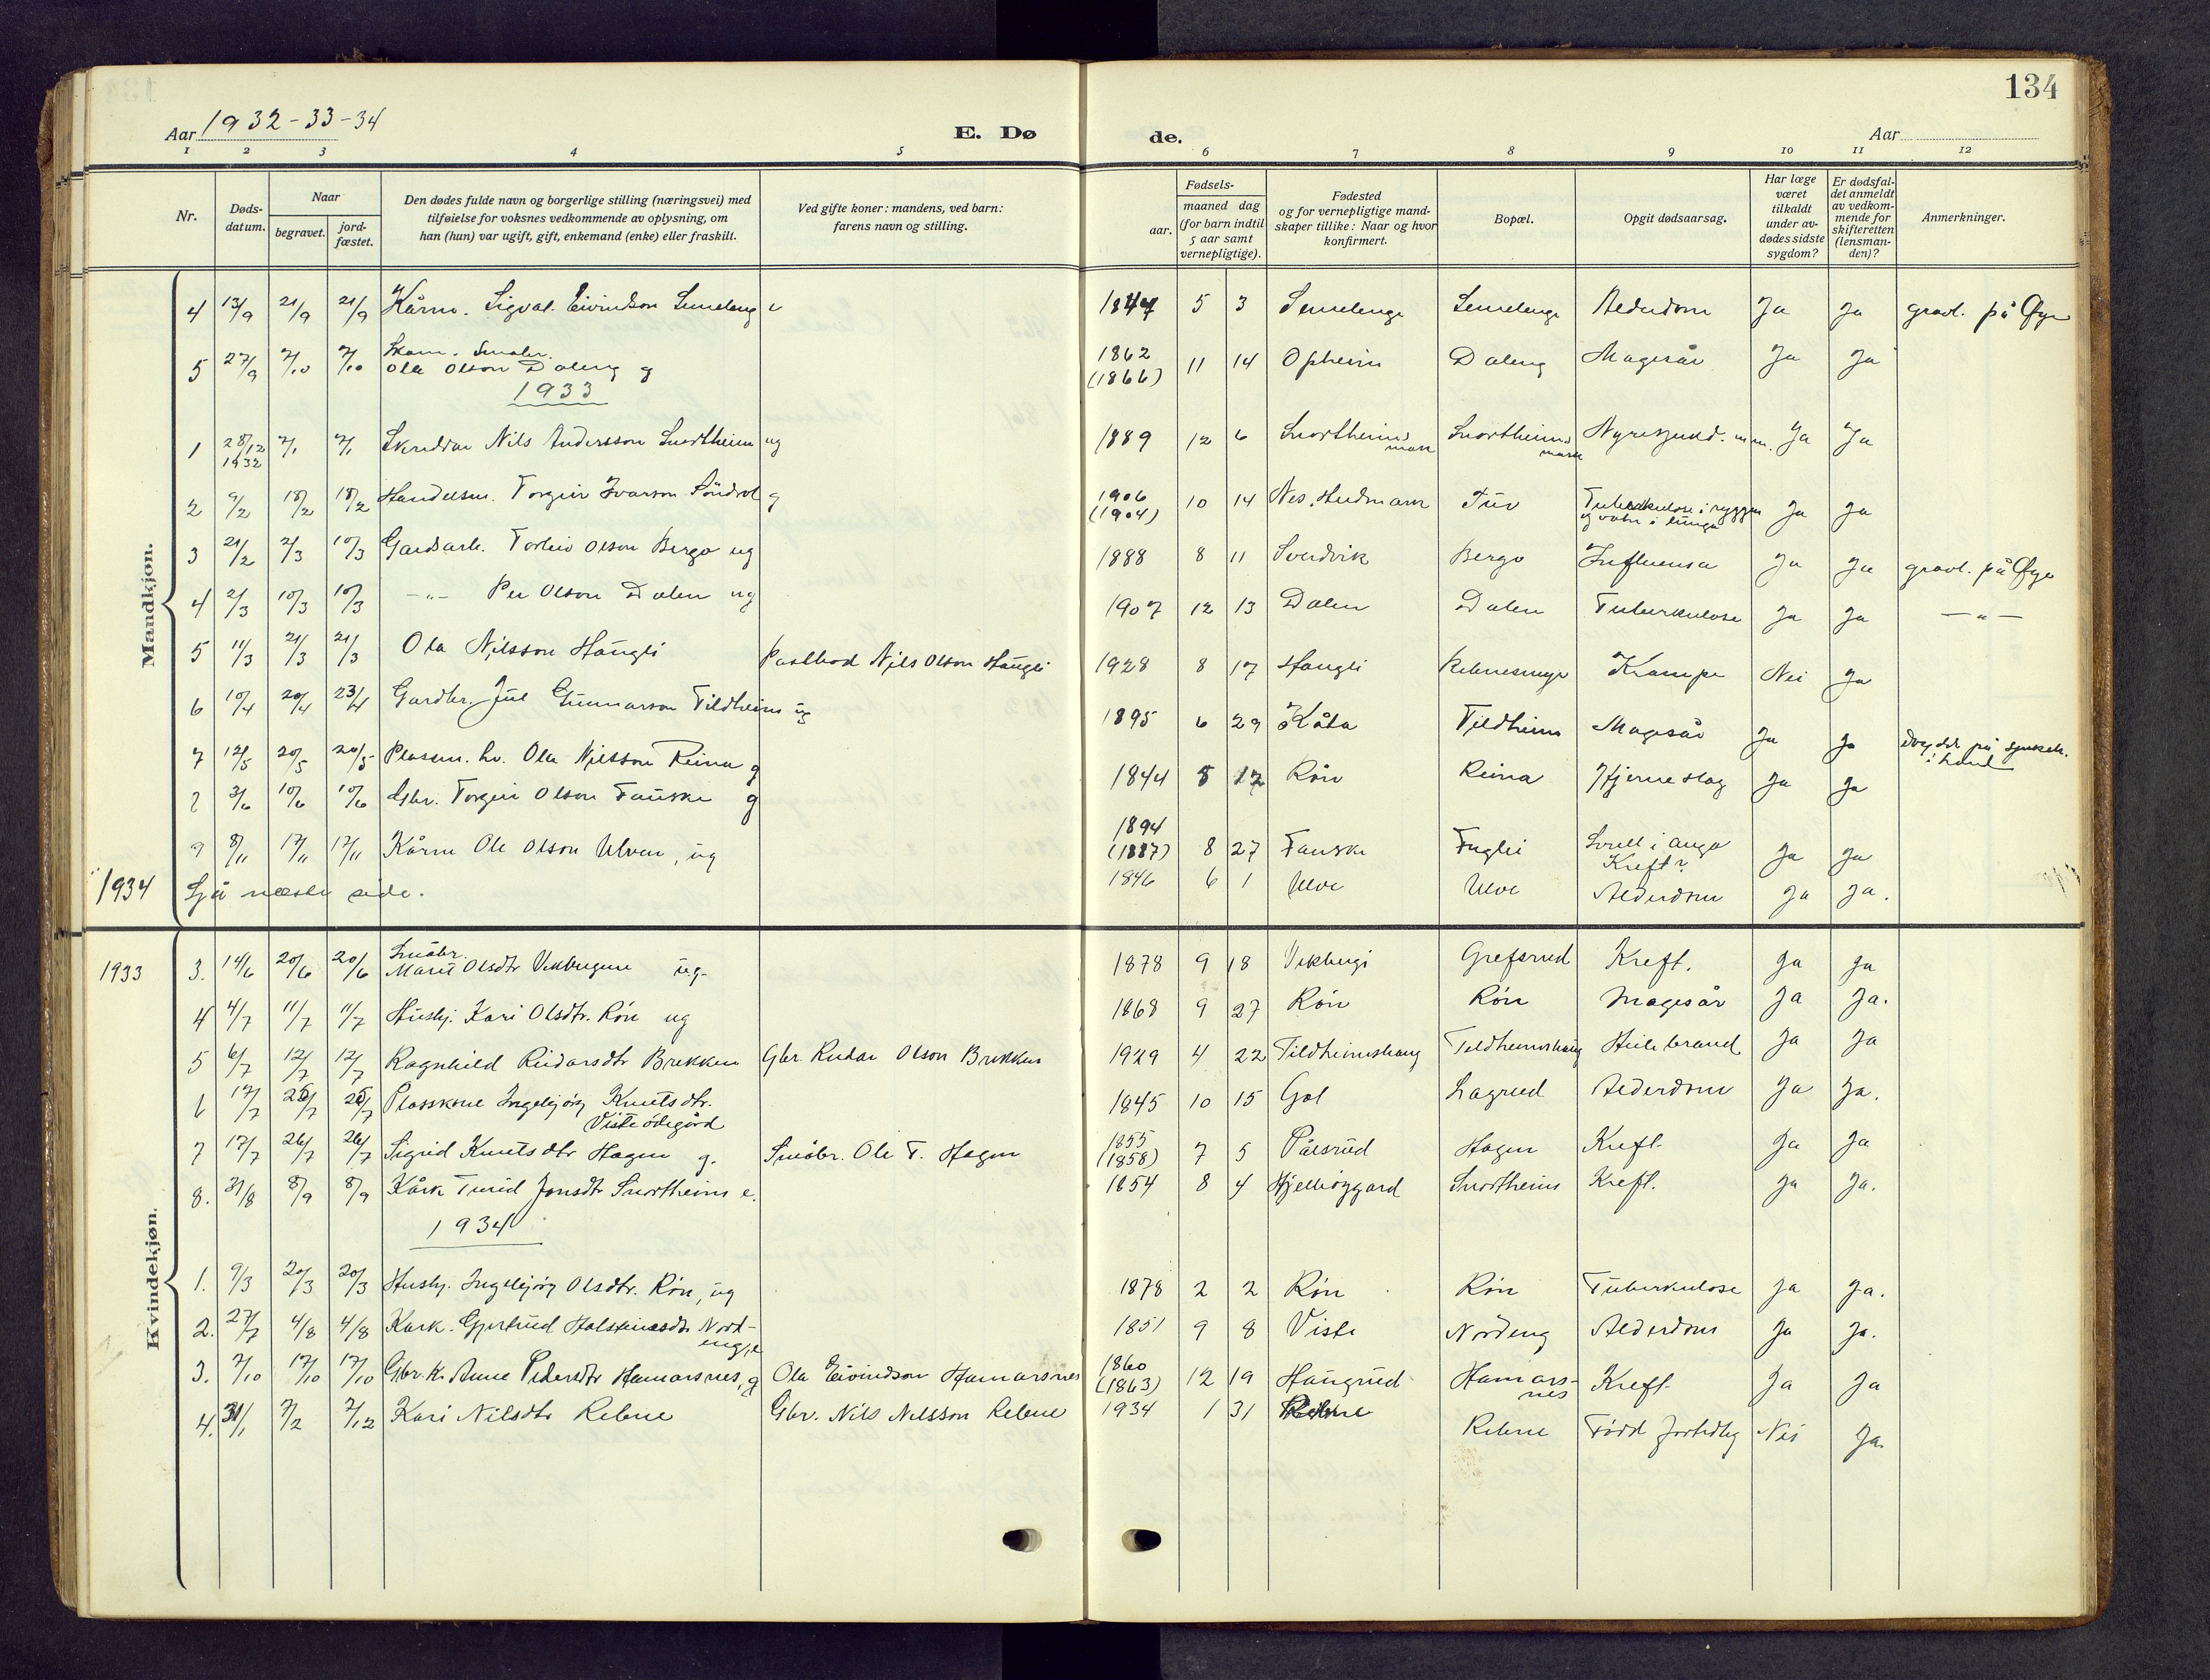 134
Aar 1932-33-34
E. Dø
de.
Aar
1 2 3 4 5 6 7 8 9 10 11 12
Nr.
Døds-
datum.
Naar
begravet.
jord-
fæstet.
Den dødes fulde navn og borgerlige stilling (næringsvei) med
tilføielse for voksnes vedkommende av oplysning, om
han (hun) var ugift, gift, enkemand (enke) eller fraskilt.
Ved gifte koner: mandens, ved barn:
farens navn og stilling.
Fødsels-
aar.
maaned dag
(for barn indtil
5 aar samt
vernepligtige).
Fødested
og for vernepligtige mand-
skaper tillike: Naar og hvor
konfirmert.
Bopæl.
Opgit dødsaarsag.
Har læge
været
tilkaldt
under av-
dødes sidste
sygdom?
Er dødsfal-
det anmeldt
av vedkom-
mende for
skifteretten
(lensman-
den)?
Anmerkninger.
Mandkjøn.
4 13/9 21/9 21/9 Kårm. Sigval. Eivindson Semeleng e 1844 5 3 Semelenge Semelenge Alderdom Ja Ja gravl. på Øye
5 27/9 7/10 7/10 Ola Olson Daleng g 1862 (1866) 11 14 Opheim Daleng Magesår Ja Ja
1933
1 28/12 1932 7/1 7/1 Skreddar Nils Andersson Snortheim ug 1889 12 6 Snortheims mark Snortheims mark Nyresjukd. m.m. Ja Ja
2 9/2 18/2 18/2 Handelsm. Torgeir Ivarson Söndrol g 1906 (1904) 10 14 Nes, Hedmark Tuv Tuberkulose i ryggen og vatn i lunga Ja Ja
3 21/2 2/3 10/3 Gardsarb. Torleiv Olson Bergo ug 1888 8 11 Svendvik Bergo Influensa Ja Ja gravl. på Øye
4 2/3 10/3 10/3 -"- Per Olson Dalen ug 1907 12 13 Dalen Dalen Tuberkulose Ja Ja -"-
5 11/3 21/3 21/3 Ola Nilsson Haugli Postbod Nils Olson Haugli 1928 8 17 Haugli Rebnesmyr Krampe Nei Ja
6 10/4 20/4 23/4 Gardbr. Jul Gunnarson Tildheim ug 1895 6 29 Kåta Tildheim Magesår Ja Ja
7 12/5 20/5 20/5 Plassm. Ola Nilsson Reina g 1844 8 12 Røn Reina Hjerneslag Ja Ja
8 3/6 10/6 10/6 Gbr. Torgeir Olson Fauske g 1894 (1887) 8 27 Fauske Fuglei Svull i auga Kreft? Ja Ja
9 8/11 17/11 17/11 Kårm Ole Olson Ulven, ug 1846 6 1 Ulve Ulve Alderdom Ja Ja.
1934 Sjå næste side.
Kvindekjøn.
1933 3. 14/6 20/6 20/6 Småbr. Marit Olsdtr Vikbergene ug. 1878 9 18 Vikbergi Grefsrud Kreft. Ja Ja
4 4/7 11/7 11/7 Hushj. Kari Olsdtr. Røn ug 1868 9 27 Røn Røn Magesår Ja Ja.
5 6/7 12/7 12/7 Ragnhild Reidarsdtr Brekken Gbr. Reidar Olson Brekken 1929 4 22 Tildheimshaug Tildheimshaug Heilebrand Ja Ja
6 17/7 25/7 25/7 Plasskone Ingebjørg Knutsdtr. Viste ödegård 1845 10 15 Gol Lagrud Alderdom Ja Ja.
7 17/7 26/7 26/7 Sigrid Knutsdtr Hagen g. Småbr. Ole T. Hagen 1855 (1858) 7 5 Pålsrud Hagen Kreft. Ja Ja
8. 31/8 8/9 8/9 Kårk Turid Jonsdtr Snortheim e. 1854 8 4 Hjelhøggard Snortheim Kreft. Ja Ja.
1934
1. 9/3 20/3 20/3 Hushj. Ingebjørg Olsdtr. Røn, ug 1878 2 2 Røn Røn Tuberkulose Ja Ja.
2. 27/7 4/8 4/8 Kark. Gjertrud Halsteinsdtr Nordeng, e 1851 9 8 Viste Nordeng Alderdom Ja Ja.
3. 7/10 17/10 17/10 Gbr.k. Anne Pedersdtr Hamarsnes, g Ola Eivindson Hamarsnes 1860 (1863) 12 19 Haugrud Hamarsnes Kreft Ja Ja
4. 31/1 7/2 7/12 Kari Nilsdtr Rebne Gbr. Nils Nilsson Rebne 1934 1 31 Rebne Rebne Född fortidleg Nei Ja.